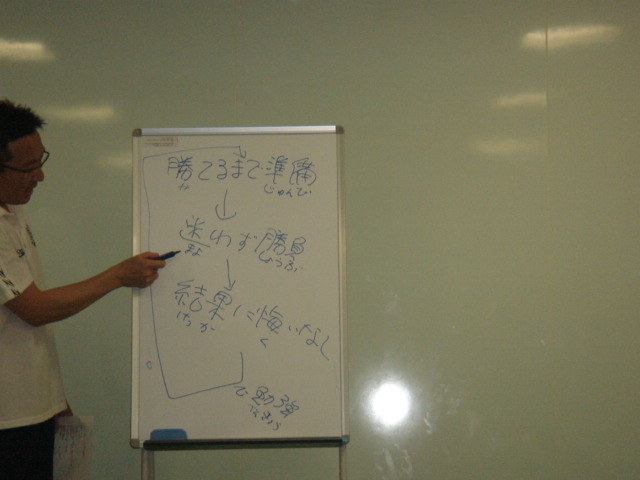 勝てるまで準備
か じゅんび
迷わず勝負
まよ しょうぶ
結果に悔いなし
けっか く
で勉強